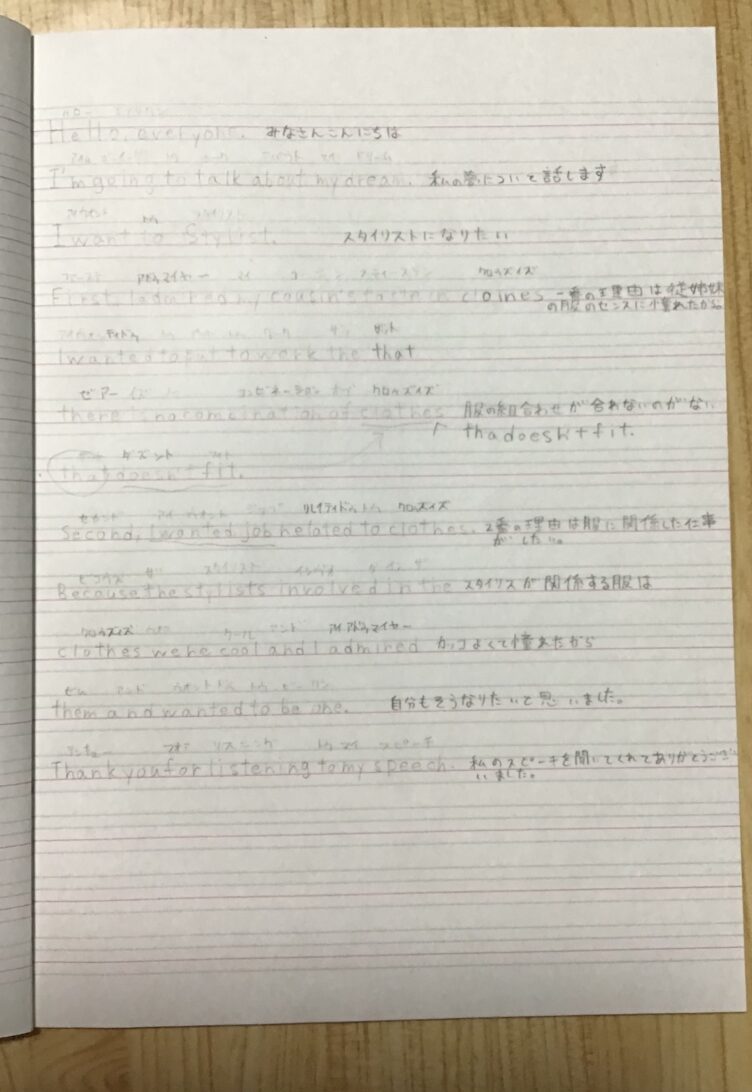 ハロー エブリワン
Hello, everyone. みなさんこんにちは
アイム ゴーイング トゥ トーク アバウト マイ ドリーム
I'm going to talk about my dream. 私の夢について話します
アイウォント トゥ スタイリスト
I want to Stylist. スタイリストになりたい
ファースト アドゥマイヤー マイ クロウズイズ
First, I admired my cousin's taste in clothes 一番の理由は従姉妹
の服のセンスに憧れたから。
ザット
I wanted to put to work the that
ゼアー イズ ノー コンビネーション オブ クロウズイズ
there is no combination of clothes 服の組合わせが合わないのがない
tha doesn't fit.
ザット ダズント フィット
that doesn't fit.
セカンド アイ ウォンテッド ジョブ リレイティドゥ トゥ クロウズイズ
Second, I wanted job related to clothes. 2番の理由は服に関係した仕事
がしたい。
ビコウズ ザ スタイリスト
Because the stylists involved in the スタイリスが関係する服は
クロウズイズ クール アンド アイ アドゥマイヤー
clothes were cool and I admired カッコよくて憧れたから
ゼム アンド トゥ ビー ワン
them and wanted to be one. 自分もそうなりたいと思いました。
サンキュー フォー リスニング トゥ マイ スピーチ
Thank you for listening to my speech. 私のスピーチを聞いてくれてありがとうござ
いました。